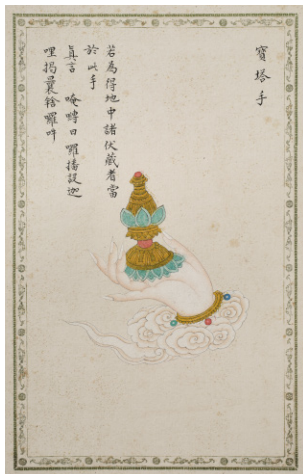 寶塔手
若為得地中諸伏藏者當
於此手
眞言 唵嚩日 囉播設迦
哩揭曩 囉吽